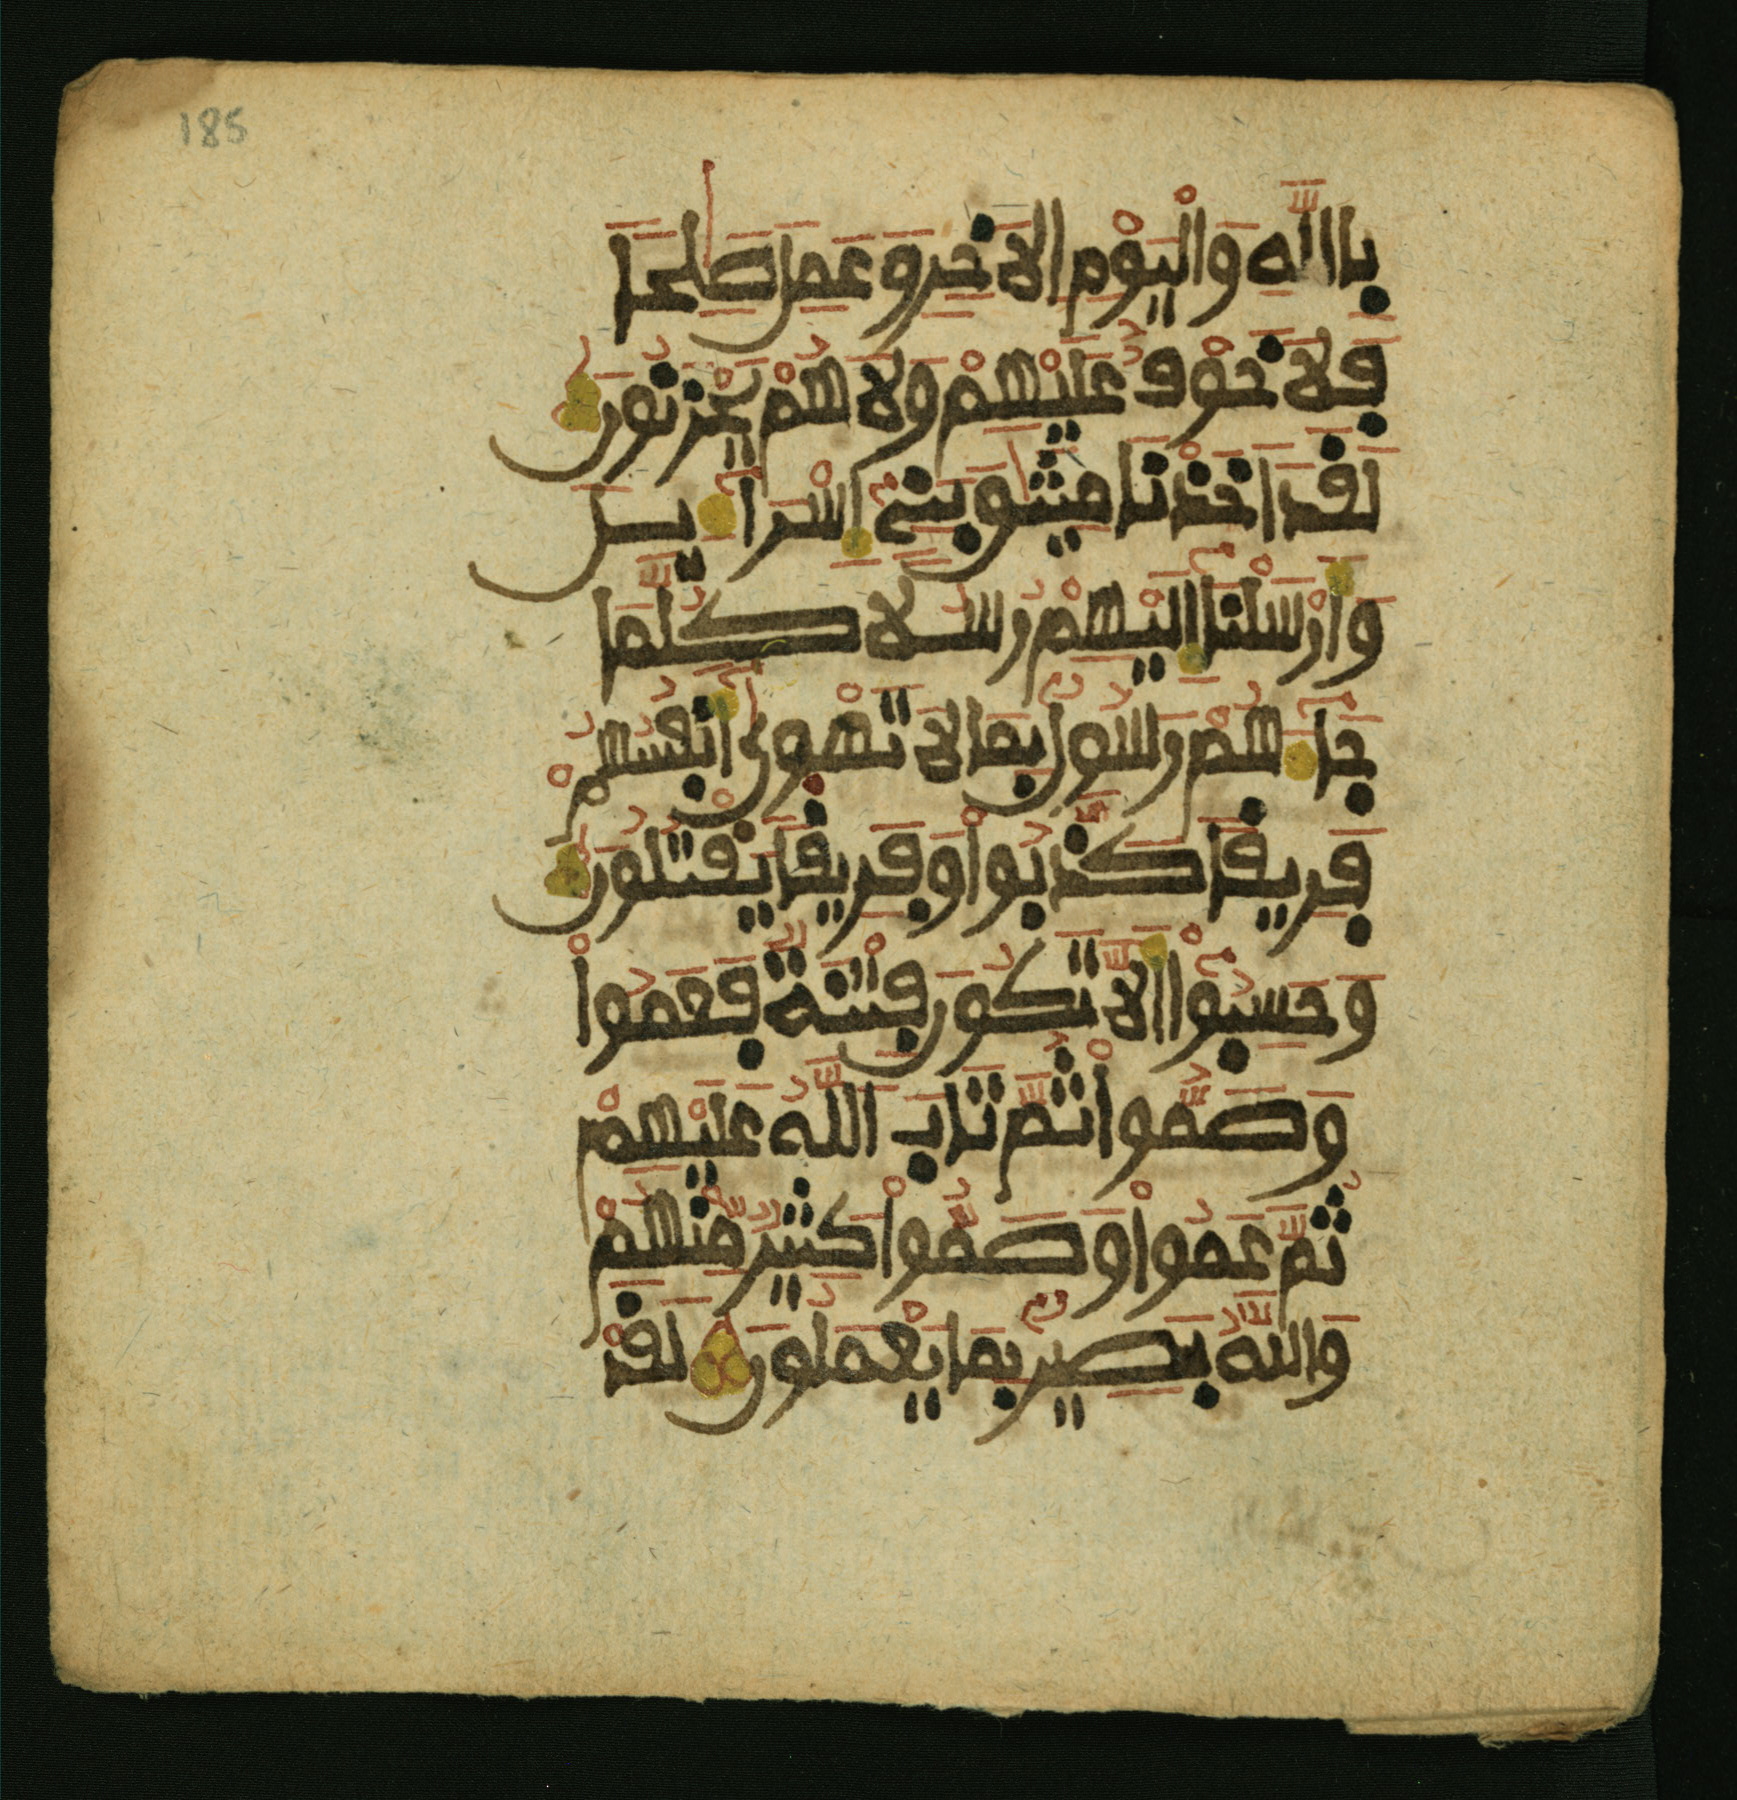 185
باالله وَالْيَوْمِ الَاخِرِ وَعَمِلَ صَٰلِحَا
فَلَا خَوْفُ عَلَيْهِمْ وَلَا هُمْ يَحْزَنُونَ
لَقَدَ اَخَذْنَا مِيثَٰقَ بَنِےٓ إِسْرَآءِيلَ
وَأَرْسَلْنَآ إِلَيْهِمْ رُسُلَا كُلَّمَا
جَآءَهُمْ رَسُولُۢ بِمَا لَا تَهْوَىٰٓ أَنفُسُهُمْ
فَرِيقَا كَذَّبُواْ وَفَرِيقَا يَقْتُلُونَ
وَحَسِبُوٓاْ أَلَّا تَكُونَ فِتْنَةٌ فَعَمُواْ
وَصَمُّواْ ثُمَّ تَابَ اَللَّهُ عَلَيْهِمْ
ثُمَّ عَمُواْ وَصَمُّواْ كَثِيرٌ مِّنْهُمْ
وَاللَّهُ بَصِيرُۢ بِمَا يَعْمَلُونَ لَقَدْ